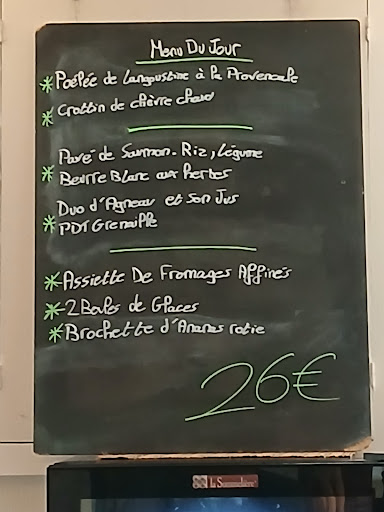 Menu Du Jour
* Poêlée de Langoustine à la Provencale
* Crottin de chèvre chaud
Pavé de Saumon. Riz, Légume
* Beurre Blanc aux herbes
Duo d'Agneau et son Jus
* PDT Grenaille
* Assiette De Fromages Affinés
* 2 Boules de Glaces
* Brochette d'Ananas rotie
26€
La Sommelière